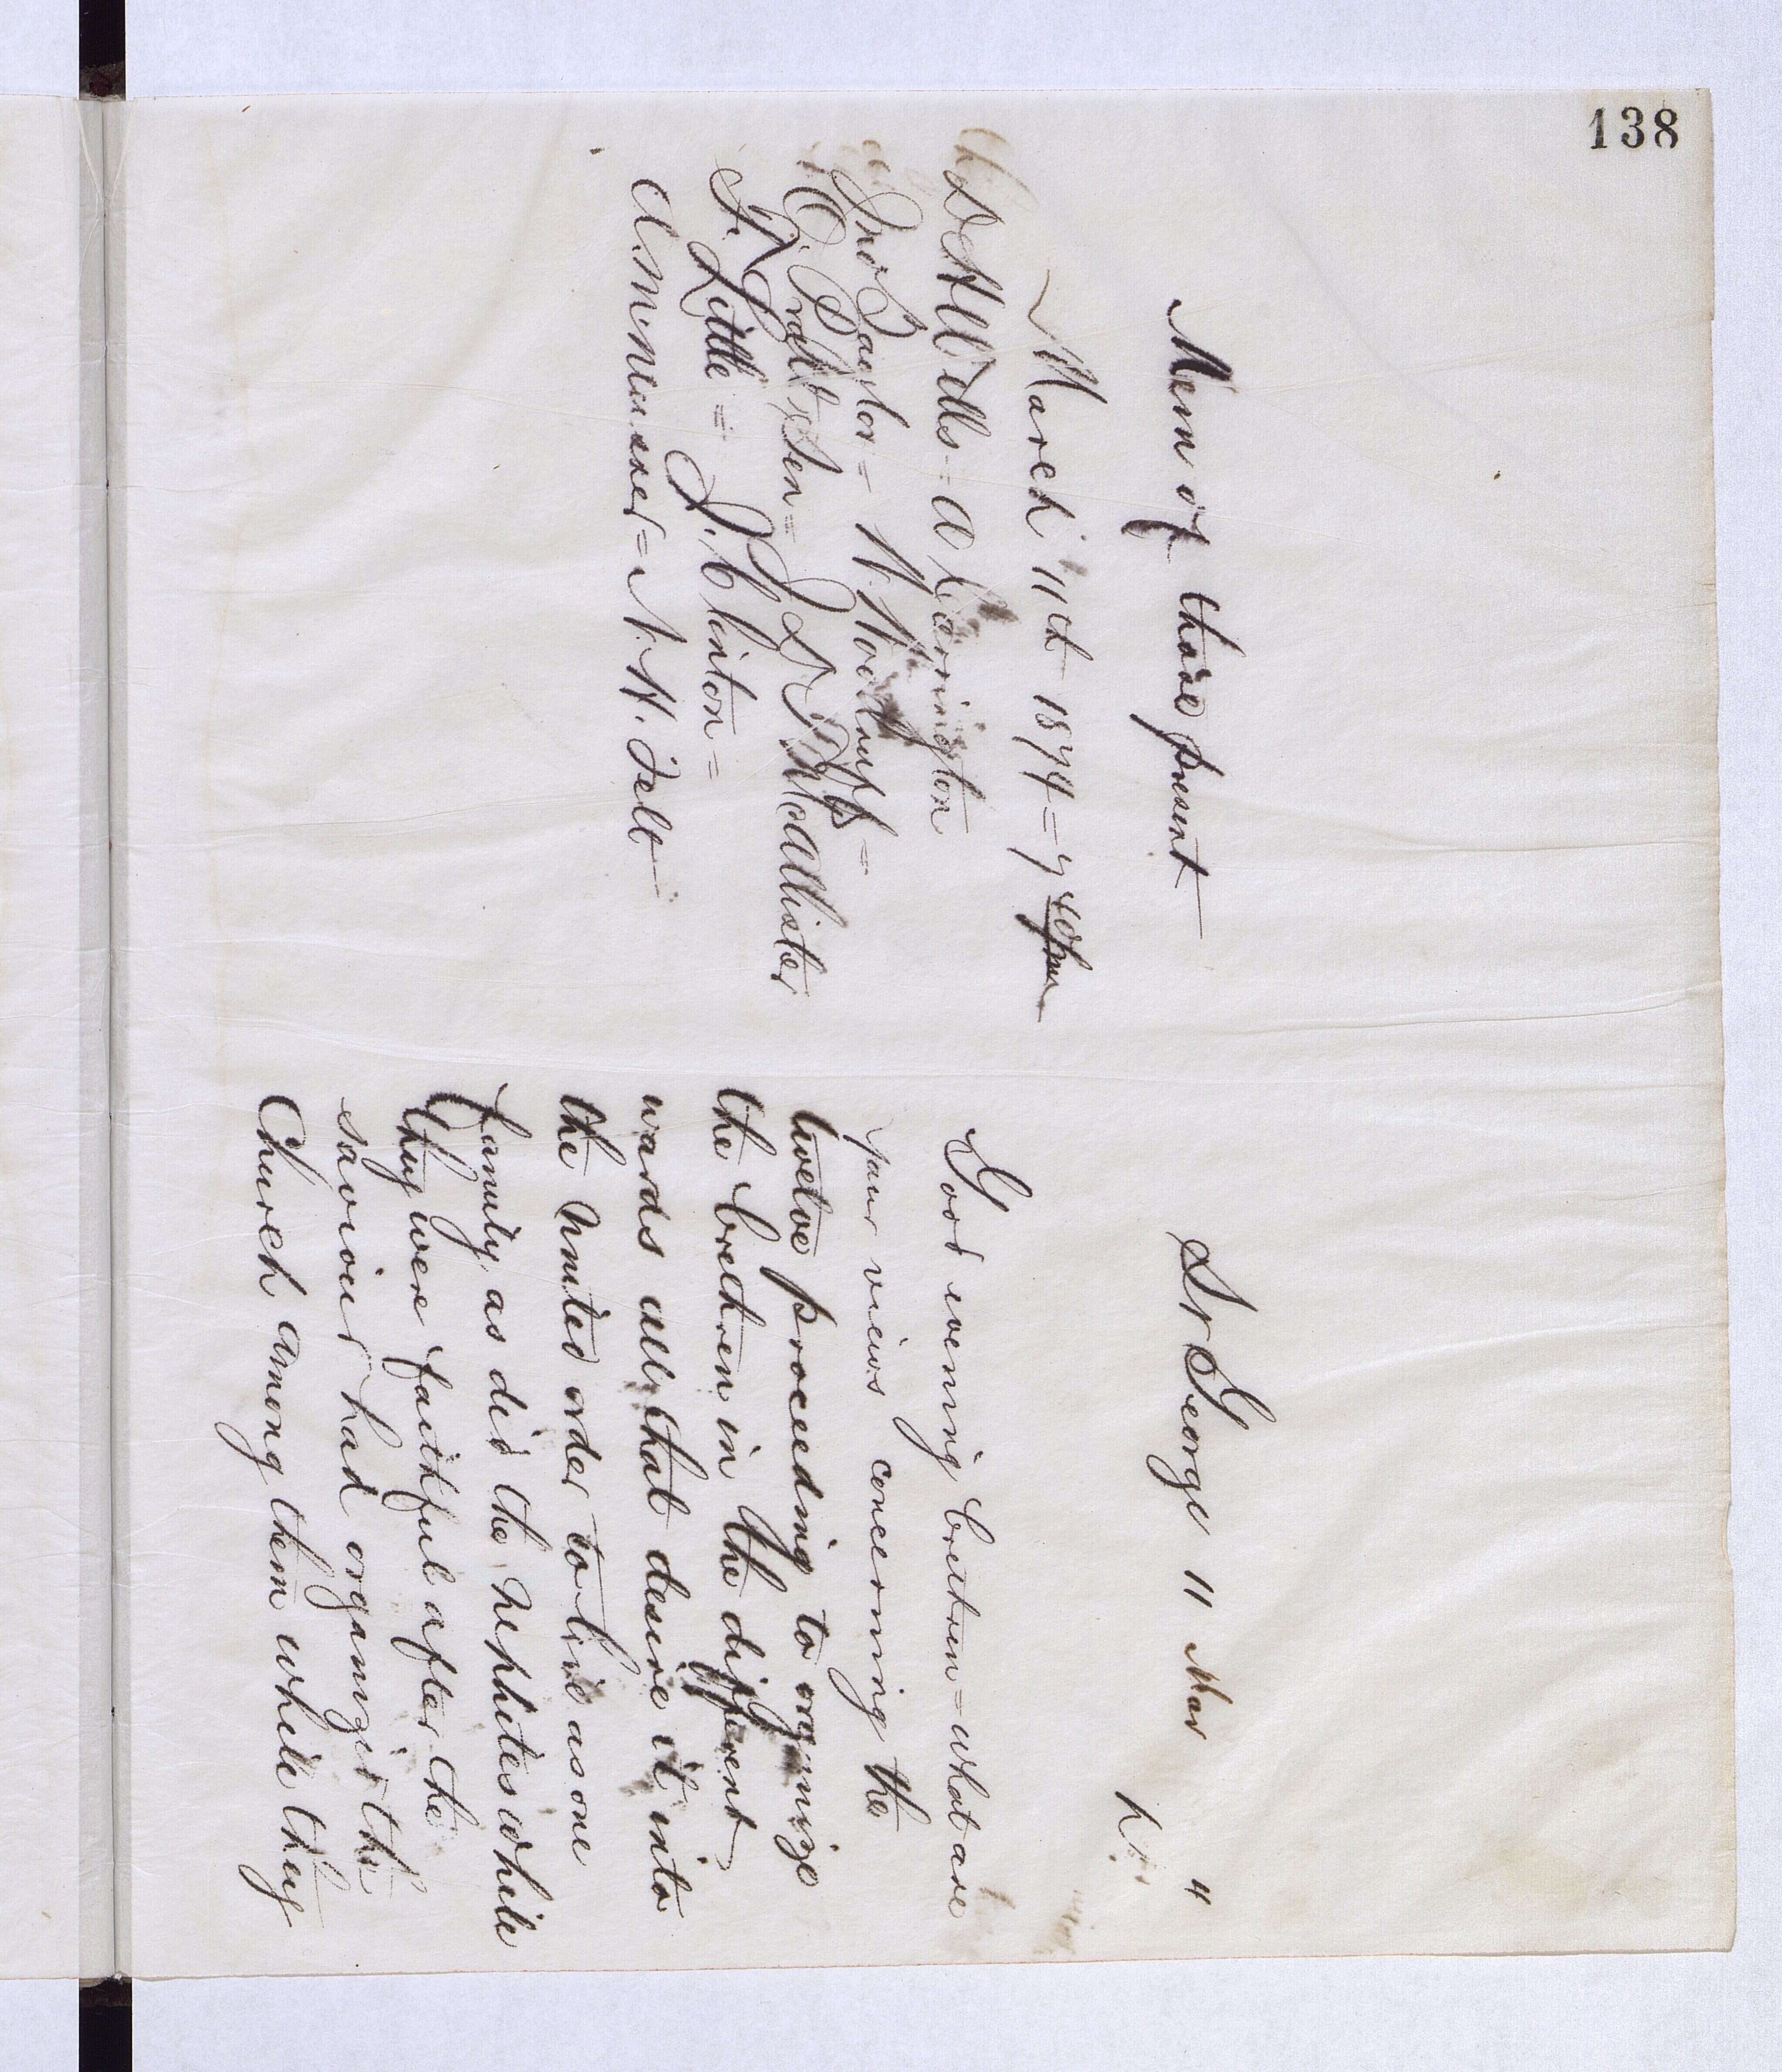 138
Mem of those present
March 11th 1874 = 7 40 pm
D H Wells = A Carrington
Jno Taylor = W. Woodruff =
O. Pratt, Sen = J D T McAllister
F. Little = J. Clinton =
A. M. Musser = N. H. Felt
St George 11 Mar 4
Good evening bretren = what are
your views concerning the
twelve proceeding to organize
the brethren in the different
wards all that desire it into
the united order to live as one
family as did the nephites while
they were faithful after the
saviour had organized the
Church among them while they